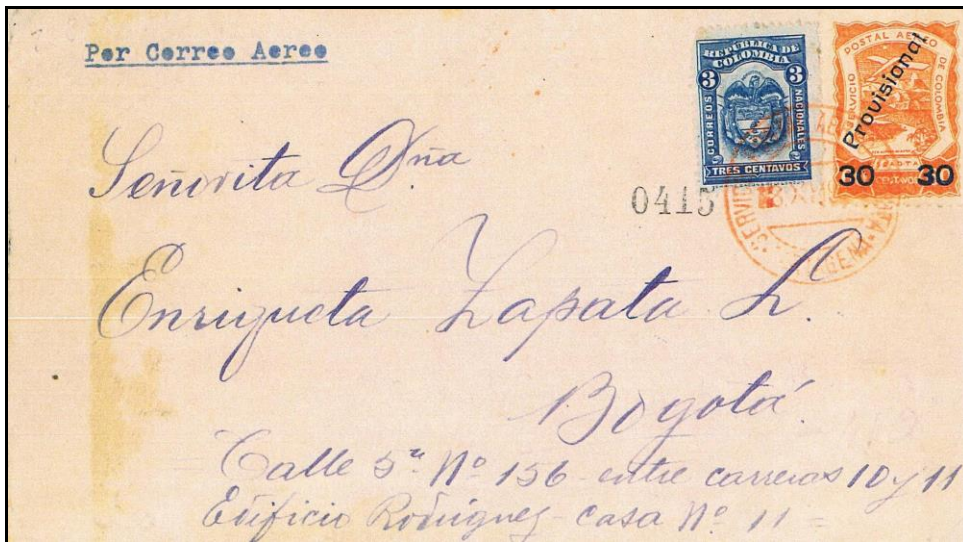 Por Correo Aereo
REPUBLICA DE
COLOMBIA
3 3
CORREOS
NACIONALES
TRES CENTAVOS
SERVICIO POSTAL AEREO DE COLOMBIA
Provisional
30 30
Señorita Dña
0415
Enriqueta Zapata L.
Bogotá.
Calle 5ª Nº 156 entre carreras 10 y 11
Edificio Rodriguez - casa Nº 11 =